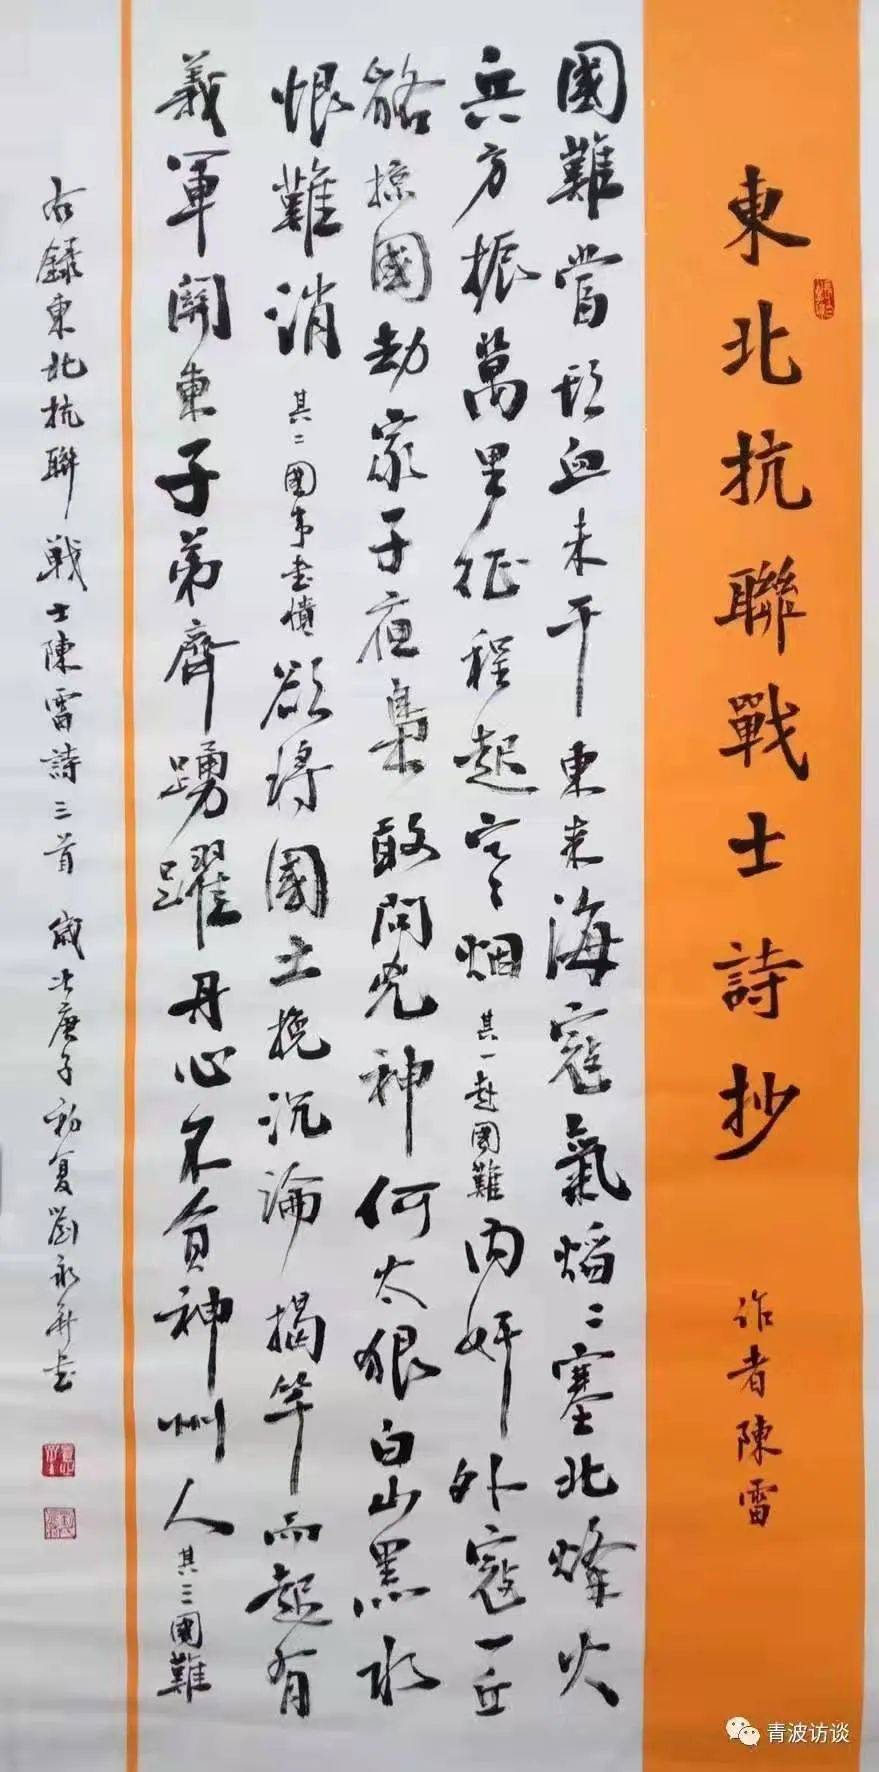 東北抗聯戰士詩抄
作者陳雷
國難當頭血未干東来海寇氣焰〻塞北烽火
兵方振萬里征程起寒烟 其一赴國難 内奸外寇一丘
貉掠國劫家子夜梟敢問兇神何太狠白山黑水
恨難消 其二國事書憤 欲將國土挽沉淪揭竿而起有
義軍關東子弟齊踴躍丹心不負神州人 其三國難
右錄東北抗聯戰士陳雷詩三首 歲次庚子初夏劉永書
青波访谈